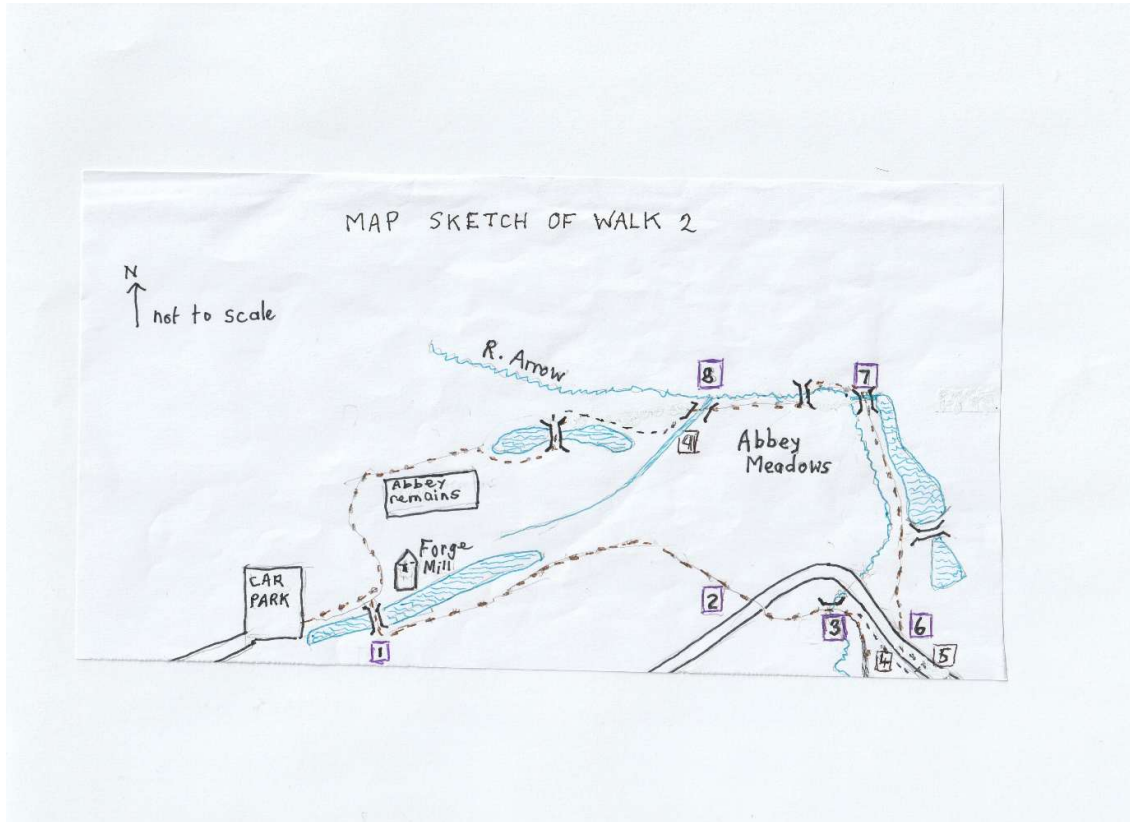 MAP SKETCH OF WALK 2
N
not to scale
R. Arrow
8
7
9
Abbey
Meadows
Abbey
remains
Forge
Mill
CAR
PARK
1
2
3
4
5
6